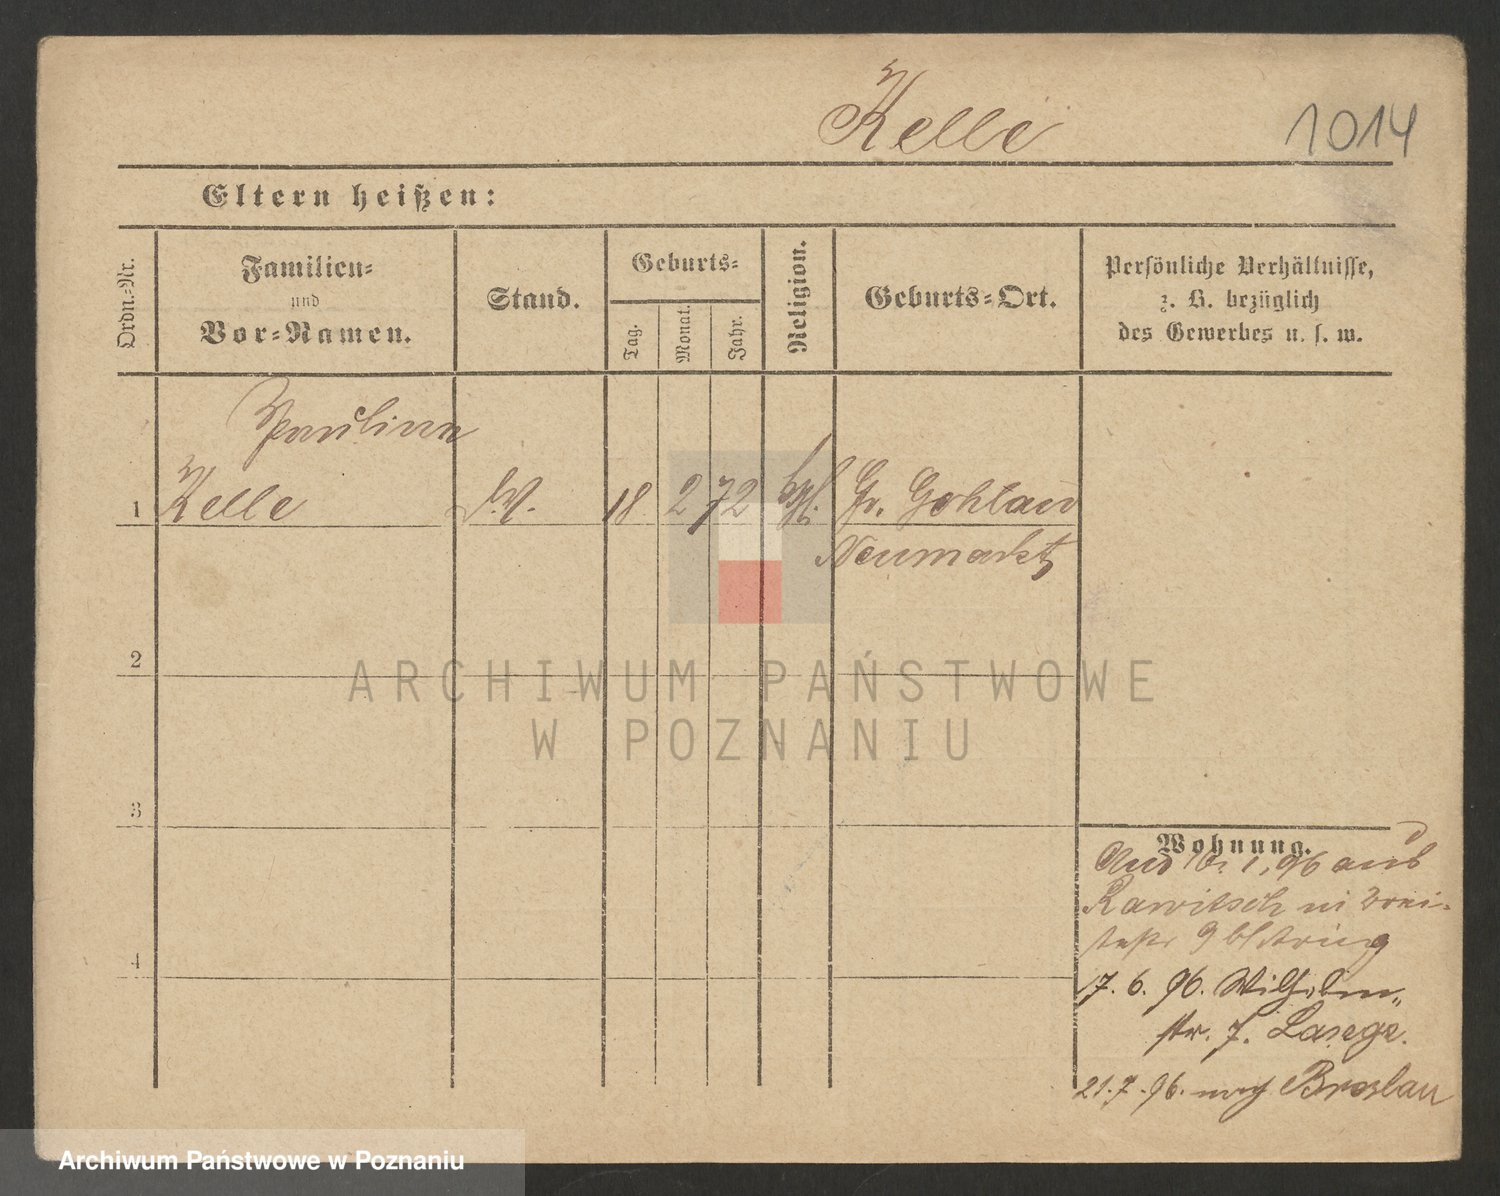 Kelle
1014
Eltern heißen:
Ordn.-Nr.
Familien-
und
Vor-Namen.
Stand.
Geburts-
Tag.
Monat.
Jahr.
Religion.
Geburts-Ort.
Persönliche Verhältnisse,
z. B. bezüglich
des Gewerbes u. s. w.
Pauline
1 Kelle 18 2 72 Gr. Gohlau
Neumarkt
2
3
4
ARCHIWUM PAŃSTWOWE
W POZNANIU
Wohnung.
96 aus
Rawitsch
17. 6. 96. Wilhelm-
str. 7. Lasege.
21. 7. 96. nach Breslau
Archiwum Państwowe w Poznaniu